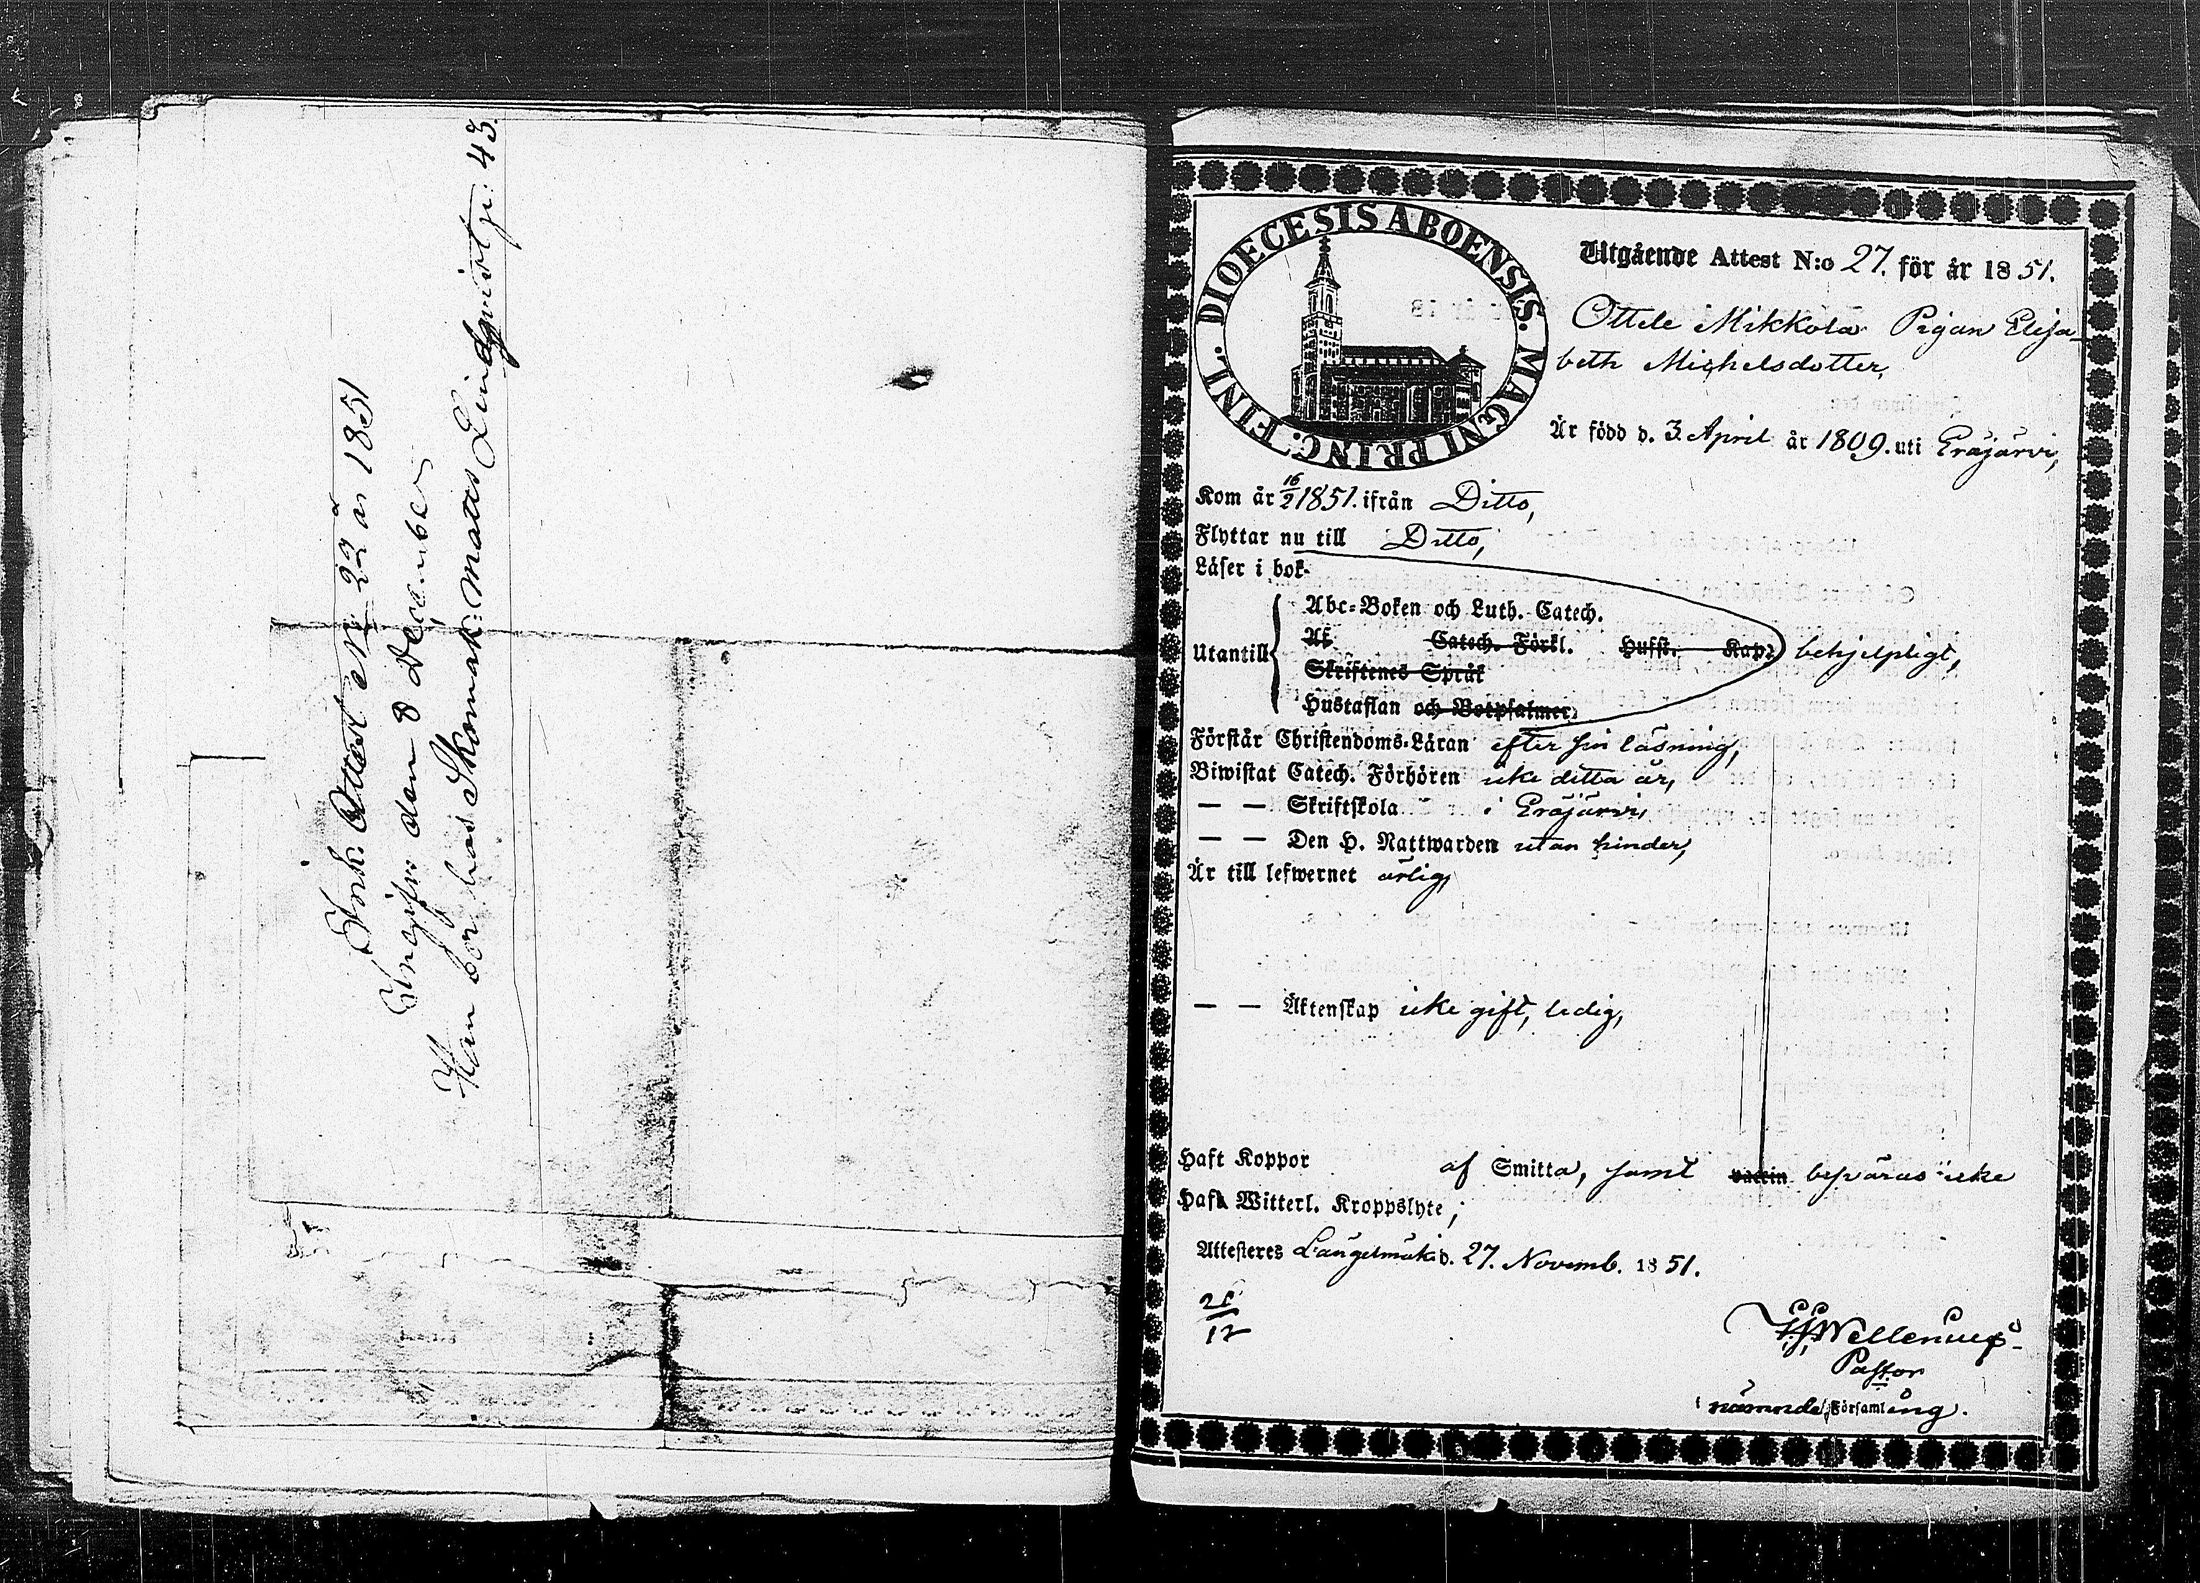 Ink. Attest No 22 år 1851
Ingifv. den 8 December
Han bor hos Skomak: Matts Lindqvist p: 43.
DIOECESIS ABOENSIS. MAGNI PRINC. FINL.
Utgående Attest N:o 27. för år 1851.
Ottele Mikkola Pigan Elisa-
beth Michelsdotter,
Är född d. 3. April år 1809. uti Eräjärvi,
Kom år 16/2 1851. ifrån Ditto,
Flyttar nu till Ditto,
Läser i bok-
Utantill
Abc-Boken och Luth. Catech.
Af Catech. Förkl. Husst. Kap. behjelpligt,
Skriftenes Språk
Hustaflan och Botpsalmer.
Förstår Christendoms-Läran efter sin läsning,
Biwistat Catech. Förhören icke detta år,
— — Skriftskola i Eräjärvi,
— — Den H. Nattwarden utan hinder,
Är till lefwernet ärlig,
— — Äktenskap icke gift, ledig,
Haft Koppor af Smitta, samt vaccin bespäras icke
Haft Witterl. Kroppslyte;
Attesteres Längelmäki d. 27. Novemb. 1851.
Pastor
i nämnde Församling.